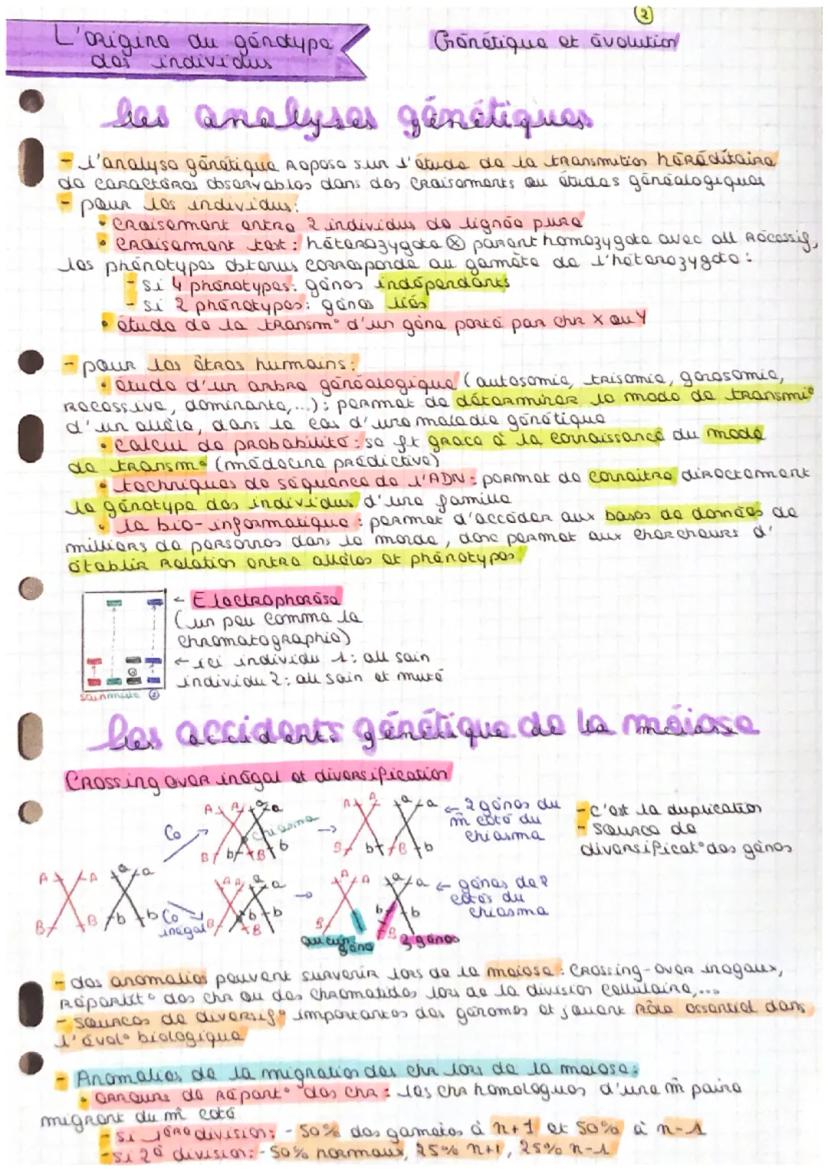 2
L'origine du génotype
des individus
Génétique et évolution
Les analyses génétiques
- l'analyse génétique repose sur l'étude de la transmition héréditaire
de caractères observables dans des craisements ou études généalogiques
- pour les individus:
• craisement entre 2 individus de lignée pure
• craisement test: hétérozygote ⊗ parent homozygote avec all récessif,
les phénotypes obtenus corresponde au gamète de l'hétérozygote:
- si 4 phénotypes: gènes indépendants
- si 2 phénotypes: gènes liés
• étude de la transm° d'un gène porté par chr X ou Y
- pour les êtres humains:
• étude d'un arbre généalogique (autosomie, trisomie, gonosomie,
récessive, dominante,...): permet de déterminer le mode de transmi°
d'un allèle, dans le cas d'une maladie génétique
• calcul de probabilité: se ft grace à la connaissance du mode
de transm° (médecine prédictive)
• techniques de séquence de l'ADN: permet de connaitre directement
le génotype des individus d'une famille
• la bio-informatique: permet d'accéder aux bases de données de
milliers de personnes dans le monde, donc permet aux chercheurs d'
établir relation entre allèles et phénotypes
← Electrophorèse
(un peu comme la
chromatographie)
← ici individu 1: all sain
individu 2: all sain et muté
sain mute ②
Les accidents génétique de la méiose
Crossing over inégal et diversification
A A a a
B B b b
Co
A A a a
chiasma
B b B b
→
A A a a
B b B b
← 2 gènes du
m̂ coté du
chiasma
- c'est la duplication
- source de
diversificat° des gènes
Co
inégal
A A a a
B b B b
→
A A a a
B b B b
← gènes de ≠
cotés du
chiasma
aucun
gène
3 gènes
- des anomalies peuvent survenir lors de la meiose: crossing-over inegaux,
répartit° des chr ou des chromatides lors de la division cellulaire,...
- sources de diversif° importantes des génomes et jouent rôle essentiel dans
l'évol° biologique
- Anomalies de la migration des chr lors de la meiose:
• erreurs de répart° des chr: les chr homologues d'une m̂ paire
migrent du m̂ coté
- si 1ère division: - 50% des gametes à n+1 et 50% à n-1
- si 2è division: - 50% normaux, 25% n+1, 25% n-1